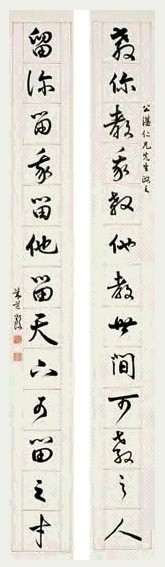 教你教我教他教世間可教之人
公湛仁兄先生
留你留我留他留天下可留之才